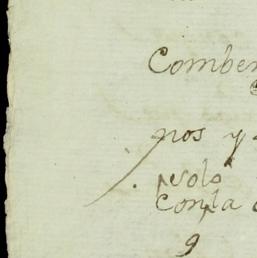 Comben
nos y
solo
Conla
9